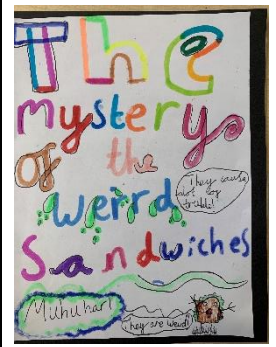 The
mystery
of the
weird
Sandwiches
They cause
lots of
trouble!
Muhuhar!
They are weird!